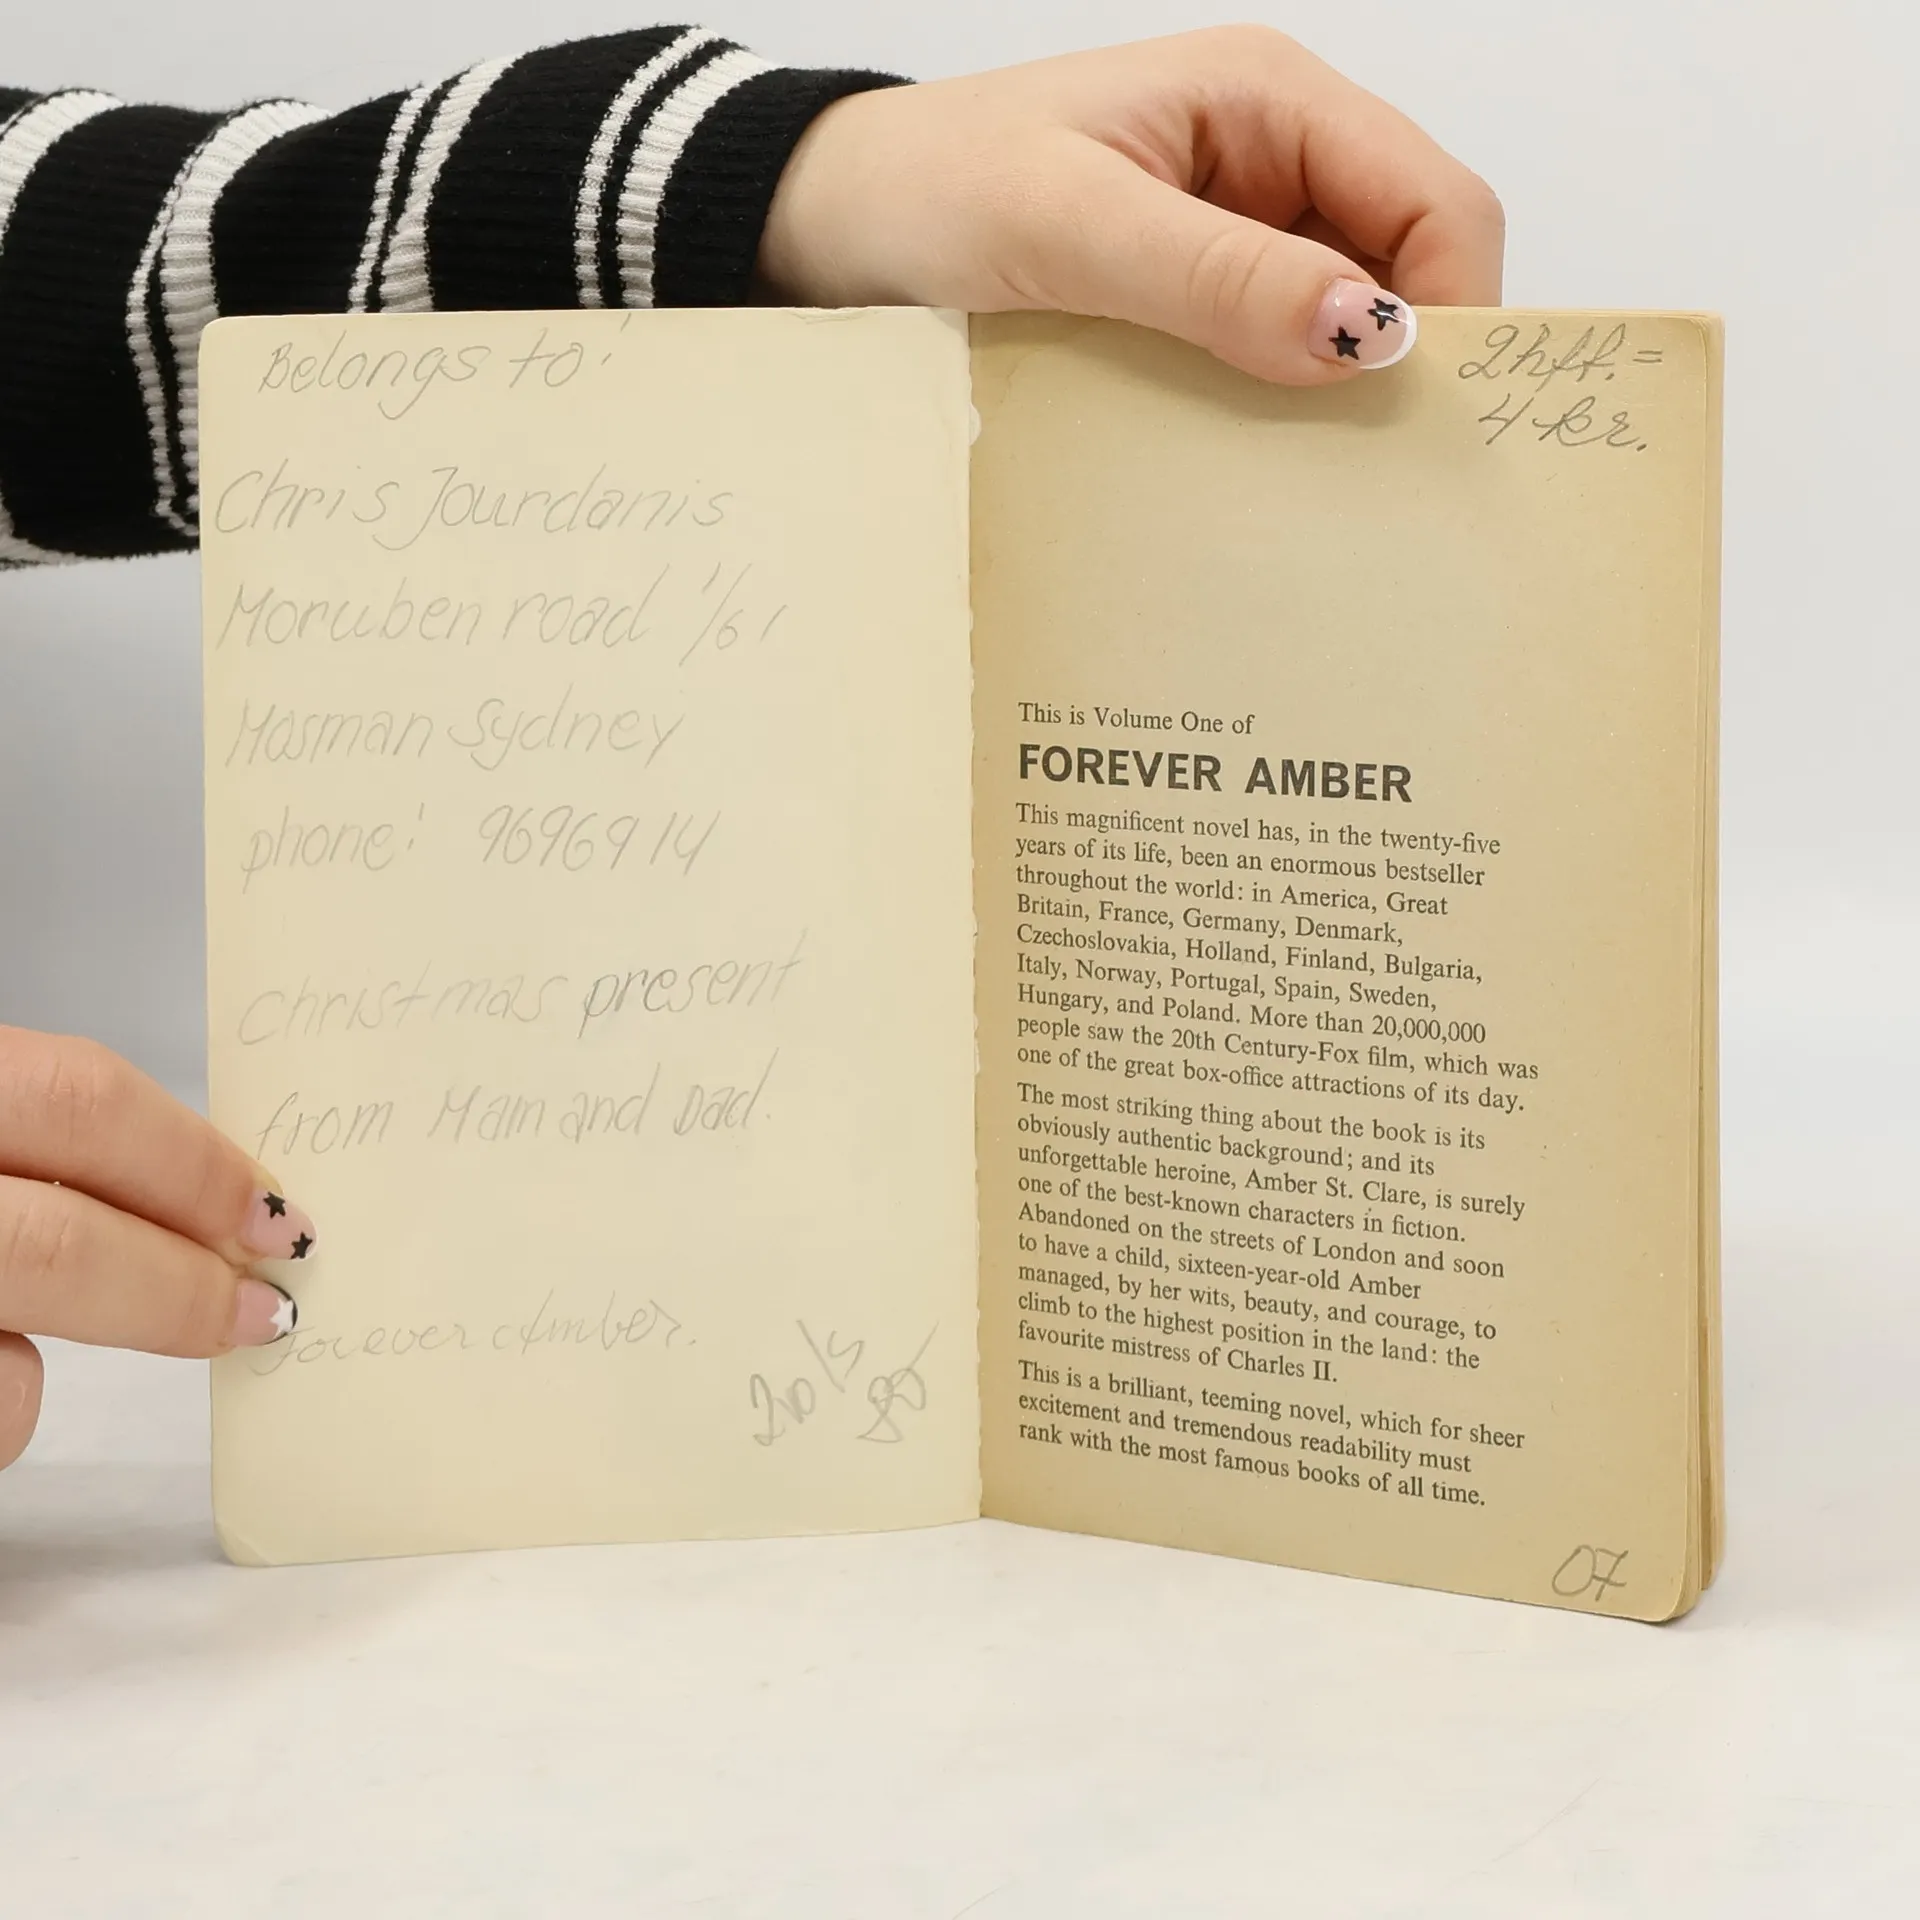 Belongs to:
Chris Jourdanis
Moruben road 1/61
Mosman Sydney
phone: 9696914
Christmas present
from Mam and Dad.
Forever Amber.
2hft. =
4 kr.
This is Volume One of
FOREVER AMBER
This magnificent novel has, in the twenty-five
years of its life, been an enormous bestseller
throughout the world: in America, Great
Britain, France, Germany, Denmark,
Czechoslovakia, Holland, Finland, Bulgaria,
Italy, Norway, Portugal, Spain, Sweden,
Hungary, and Poland. More than 20,000,000
people saw the 20th Century-Fox film, which was
one of the great box-office attractions of its day.
The most striking thing about the book is its
obviously authentic background; and its
unforgettable heroine, Amber St. Clare, is surely
one of the best-known characters in fiction.
Abandoned on the streets of London and soon
to have a child, sixteen-year-old Amber
managed, by her wits, beauty, and courage, to
climb to the highest position in the land: the
favourite mistress of Charles II.
This is a brilliant, teeming novel, which for sheer
excitement and tremendous readability must
rank with the most famous books of all time.
07